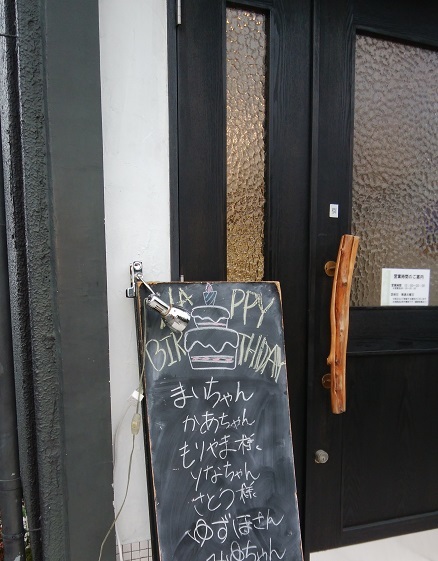 HAPPY
BIRTHDAY
まいちゃん
かあちゃん
もりやま様
りなちゃん
さとう様
ゆずほさん
みゆちゃん
営業時間のご案内